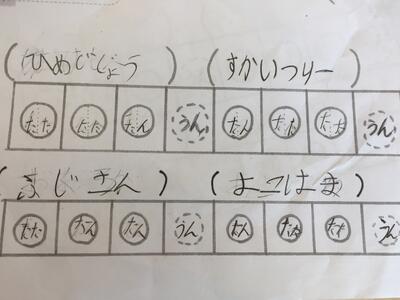 (ひめぢじょう) (すかいつりー)
たた たた たん うん たん たた たた うん
(よこはま)
たた たん たん うん たん たた たた うん